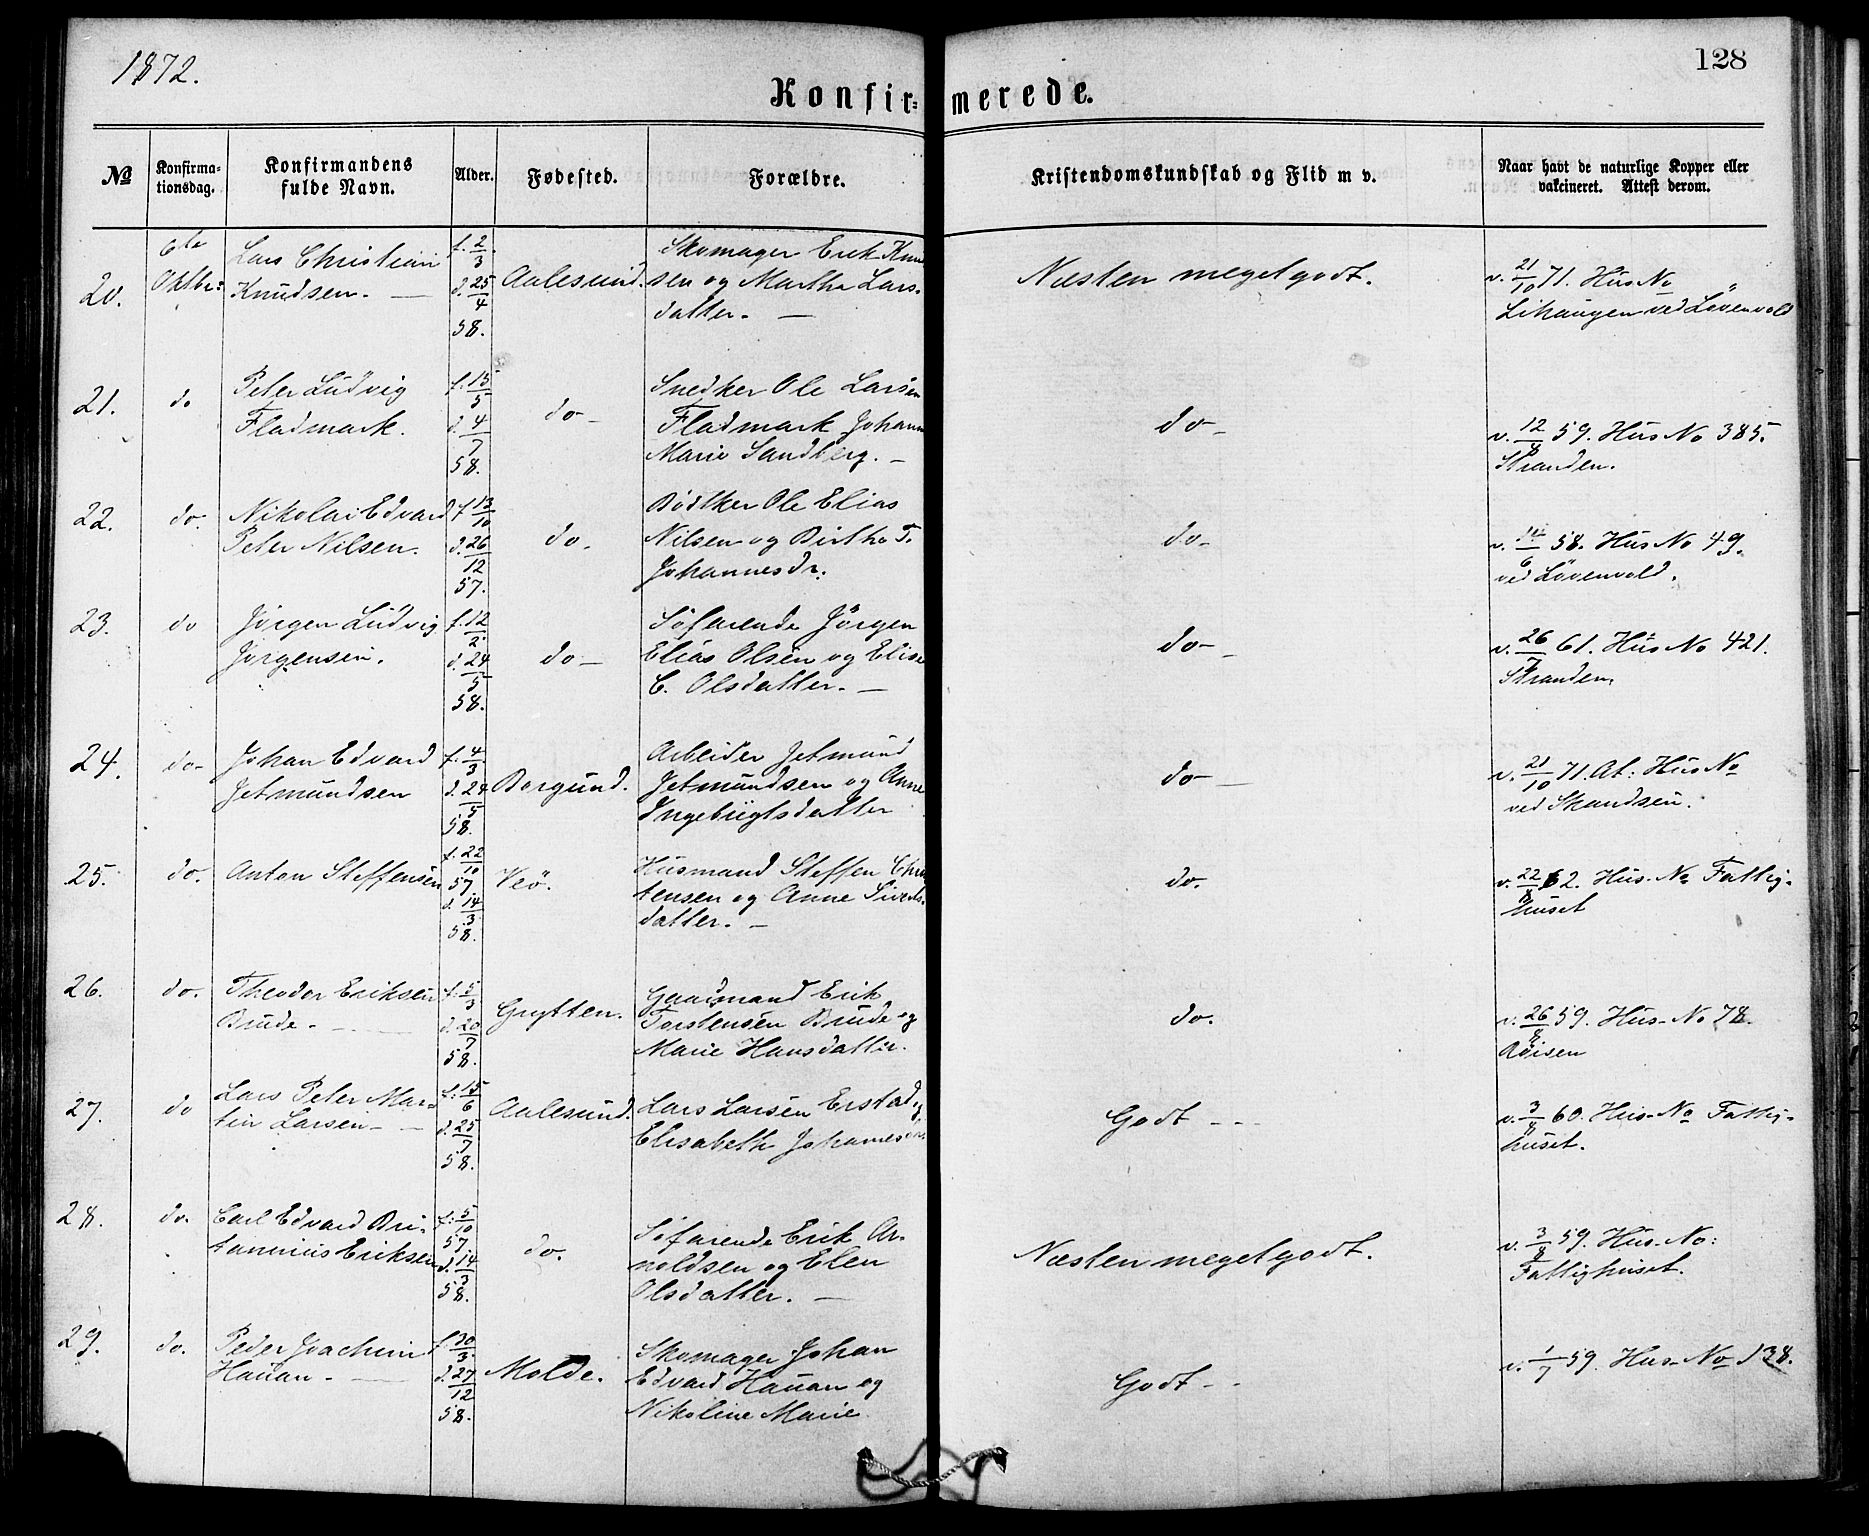 1872.
128
Konfir=merede.
№
Konfirma-
tionsdag.
Konfirmandens
fulde Navn.
Alder.
Fødested.
Forældre.
Kristendomskundskab og Flid m v.
Naar havt de naturlige Kopper eller
vakcineret. Attest derom.
20.
6te
Oktbr:
Lars Christian
Knudsen. —
f. 2/3
d. 25/4
58.
Aalesund.
Skomager Erik Knud
sen og Martha Lars-
datter. —
Næsten meget godt.
v. 21/10 71. Hus No
Lihaugen ved Løvenvold
21.
do
Peter Ludvig
Fladmark.
f. 15/5
d. 4/7
58.
do —
Snedker Ole Larsen
Fladmark Johann
Marie Sandberg. —
do —
v. 12/8 59. Hus No 385.
Stranden.
22.
do.
Nikolai Edvard
Peter Nilsen.
f 13/10
d. 26/12
57.
do.
Bødtker Ole Elias
Nilsen og Birthe T.
Johannesdr.
do —
v. 14/6 58. Hus No 49.
ved Løvenvold.
23.
do
Jørgen Ludvig
Jørgensen.
f. 12/2
d. 24/5
58.
do —
Søfarende Jørgen
Elias Olsen og Elise
C. Olsdatter. —
do —
v. 26/7 61. Hus No 421.
Stranden,
24.
do —
Johan Edvard
Jetmundsen
f. 4/3
d. 24/5
58.
Borgund.
Arbeider Jetmund
Jetmundsen og Anne
Ingebrigtsdatter
do —
v. 21/10 71. At: Hus No
ved Skandsen.
25.
do.
Anton Steffensen
f. 22/10
57.
d. 14/3
58.
Veø.
Husmand Steffen Chris
tensen og Anne Siverts-
datter. —
do.
v. 22/8 62. Hus- No Fattig-
huset
26.
do.
Theodor Eriksen
Brude. —
f. 5/3
d. 20/7
58.
Grytten.
Gaardmand Erik
Torstensen Brude og
Marie Hansdatter.
do.
v. 26/8 59. Hus- No 78.
Røisen
27.
do
Lars Peter Mar-
tin Larsen —
f. 15/6
d. 25/7
58.
Aalesund.
Lars Larsen Erstad og
Elisabeth Johannesens
Godt — —
v. 3/8 60. Hus- No Fattig-
huset.
28.
do.
Carl Edvard Bri-
tannius Eriksen
f. 5/10
57
d. 14/3
58.
do.
Søfarende Erik Ar-
noldsen og Elen
Olsdatter. —
Næsten meget godt.
v. 3/8 59. Hus- No:
Fattighuset.
29.
do.
Peder Joachim
Hauan. —
f. 30/3.
d. 27/12
58.
Molde.
Skomager Johan
Edvard Hauan og
Nikoline Marie
Godt —
v. 1/7 59. Hus- No 138.